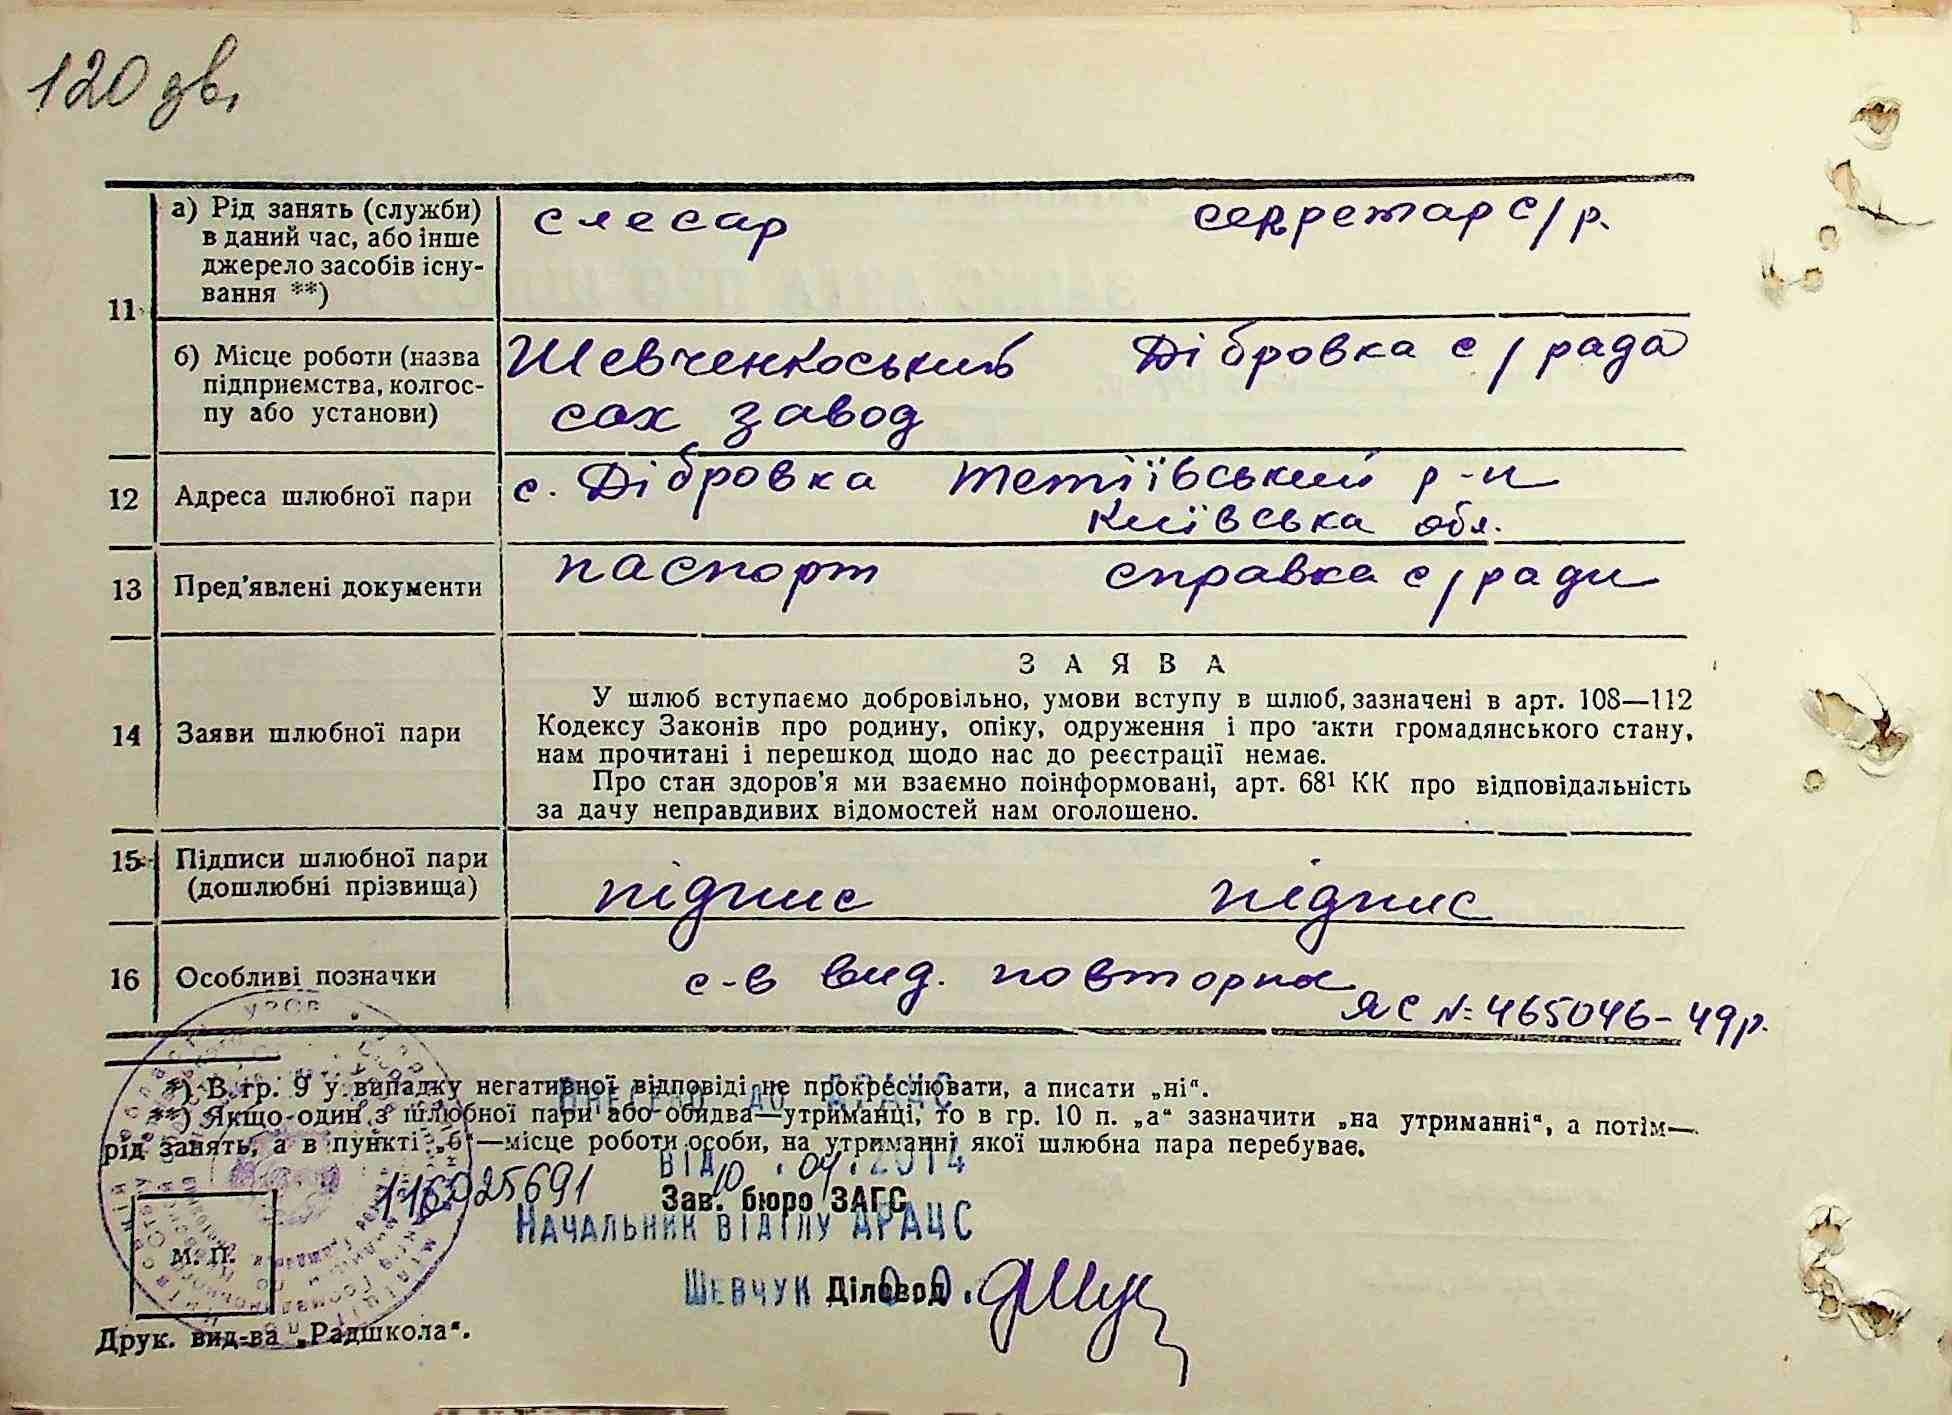 120 зв.
11
а) Рід занять (служби) в даний час, або інше джерело засобів існування **)
слесар секретар с/р.
б) Місце роботи (назва підприємства, колгоспу або установи)
Шевченкоський Дібровка с/рада
сах завод
12 Адреса шлюбної пари с. Дібровка Тетіївський р-н
Київська обл.
13 Пред'явлені документи паспорт справка с/ради
14 Заяви шлюбної пари
ЗАЯВА
У шлюб вступаємо добровільно, умови вступу в шлюб, зазначені в арт. 108—112
Кодексу Законів про родину, опіку, одруження і про акти громадянського стану,
нам прочитані і перешкод щодо нас до реєстрації немає.
Про стан здоров'я ми взаємно поінформовані, арт. 68¹ КК про відповідальність
за дачу неправдивих відомостей нам оголошено.
15 Підписи шлюбної пари
(дошлюбні прізвища)
підпис підпис
16 Особливі позначки с-в вид. повторна
ЯС №: 465046-49р.
*) В гр. 9 у випадку негативної відповіді не прокреслювати, а писати „ні“.
**) Якщо один з шлюбної пари або обидва—утриманці, то в гр. 10 п. „а“ зазначити „на утриманні“, а потім—
рід занять, а в пункті „б“—місце роботи особи, на утриманні якої шлюбна пара перебуває.
Внесено до ДРАЦС
від 10.04.2014
116025691
Зав. бюро ЗАГС
Начальник відділу ДРАЦС
М. П.
Шевчук О.О.
Діловод
Друк. вид-ва „Радшкола“.